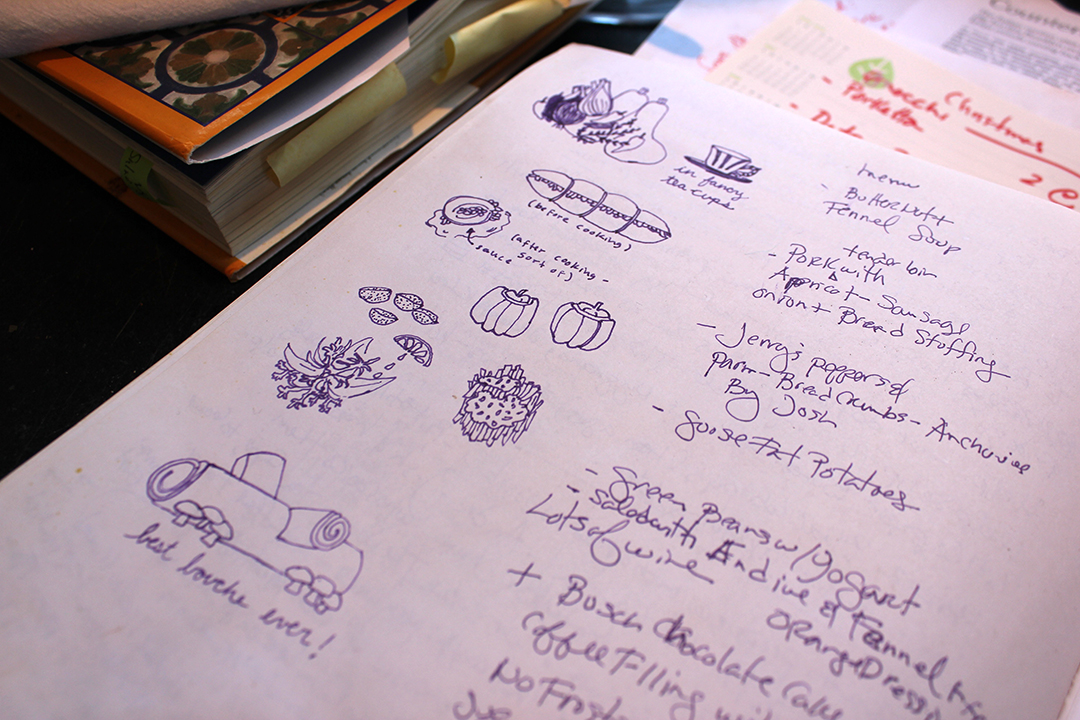 in fancy
tea cups
(before cooking)
(after cooking -
sort of)
sauce
best bouche ever!
menu
- Butternut
Fennel Soup
tenderloin
- Pork with
Apricot - Sausage
onion + Bread Stuffing
- Jerry's peppers of
parm - Bread Crumbs - Anchovies
By Josh
- Goose Fat Potatoes
- Green Beans w/ Yogurt
- Salad with Andive & Fennel
orange
Lots of wine
+ Busch Chocolate Cake
Coffee Filling
No Frost
Gnocchi
Christmas
Porkloin
2